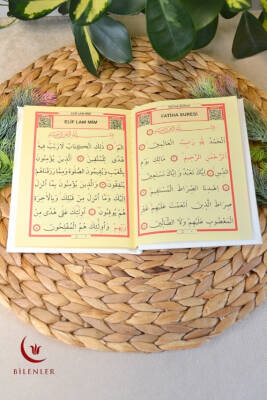 FATİHA SURESİ
اَلْحَمْدُ لِلّٰهِ رَبِّ الْعَالَمِينَ
اَلرَّحْمٰنِ الرَّحِيمِ مَالِكِ يَوْمِ
الدِّينِ اِيَّاكَ نَعْبُدُ وَ اِيَّاكَ نَسْتَعِينُ
اِهْدِنَا الصِّرَاطَ الْمُسْتَقِيمَ
صِرَاطَ الَّذِينَ اَنْعَمْتَ عَلَيْهِمْ غَيْرِ
الْمَغْضُوبِ عَلَيْهِمْ وَلَا الضَّالِّينَ
ELİF LAM MİM
الٓمٓ ذٰلِكَ الْكِتَابُ لَا رَيْبَ فِيهِ
هُدًى لِلْمُتَّقِينَ اَلَّذِينَ يُؤْمِنُونَ
بِالْغَيْبِ وَيُقِيمُونَ الصَّلٰوةَ وَمِمَّا رَزَقْنَاهُمْ
يُنْفِقُونَ وَالَّذِينَ يُؤْمِنُونَ بِمَا اُنْزِلَ
اِلَيْكَ وَمَا اُنْزِلَ مِنْ قَبْلِكَ وَبِالْاٰخِرَةِ
هُمْ يُوقِنُونَ اُولٰئِكَ عَلٰى هُدًى مِنْ
رَبِّهِمْ وَاُولٰئِكَ هُمُ الْمُفْلِحُونَ
BİLENLER